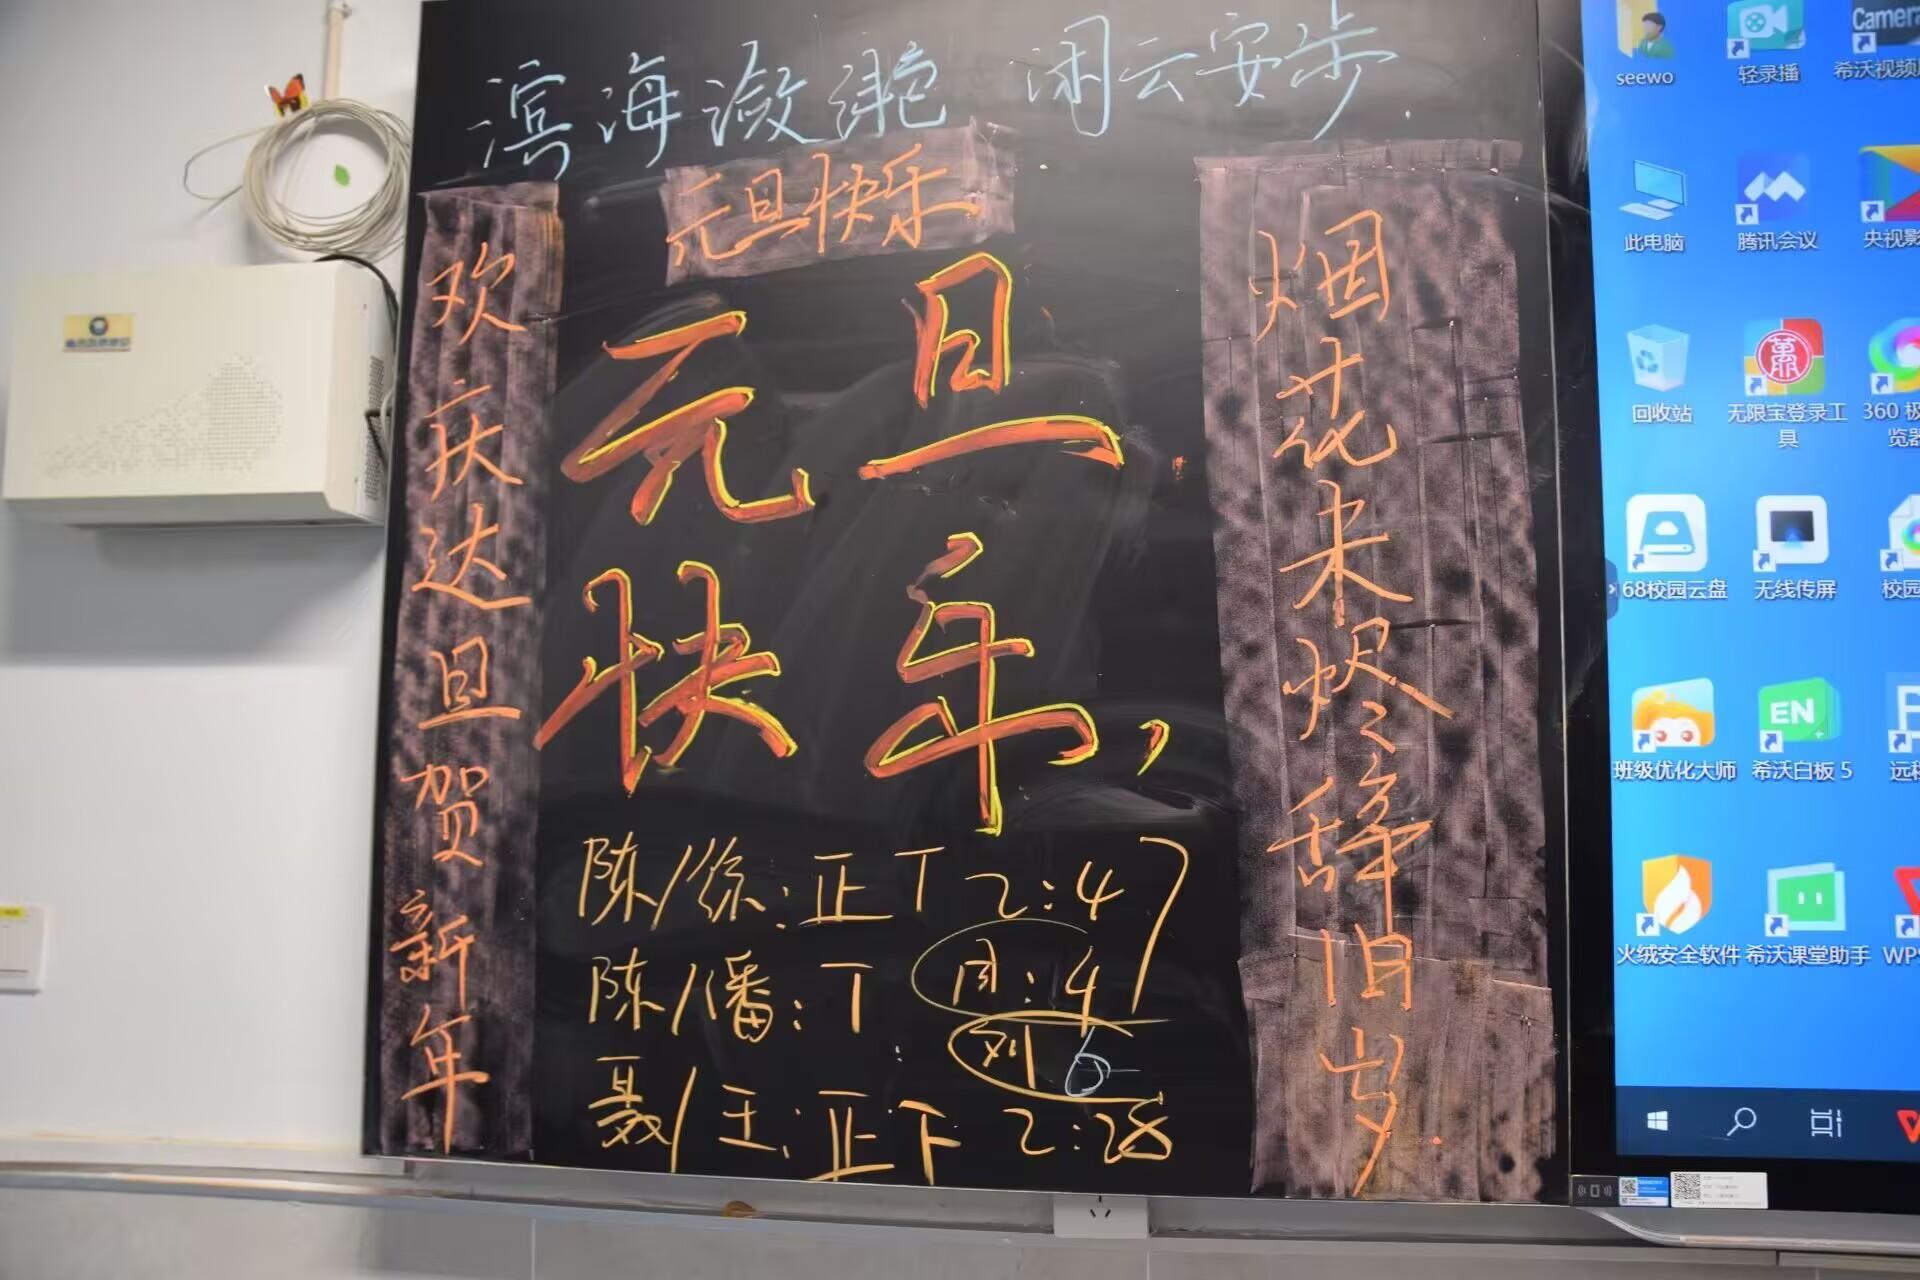 滨海潋滟 闲云安步.
元旦快乐
欢庆达旦贺新年
元旦
快乐,
烟花未烬辞旧岁.
陈/徐:正丅 2:47
陈/潘:丅 周:4
刘 6
聂/王:正下 2:28
seewo
轻录播
希沃视频
此电脑
腾讯会议
央视影
回收站
无限宝登录工
具
360 极
览器
68校园云盘
无线传屏
校园
班级优化大师
希沃白板 5
远程
火绒安全软件
希沃课堂助手
WPS
EN